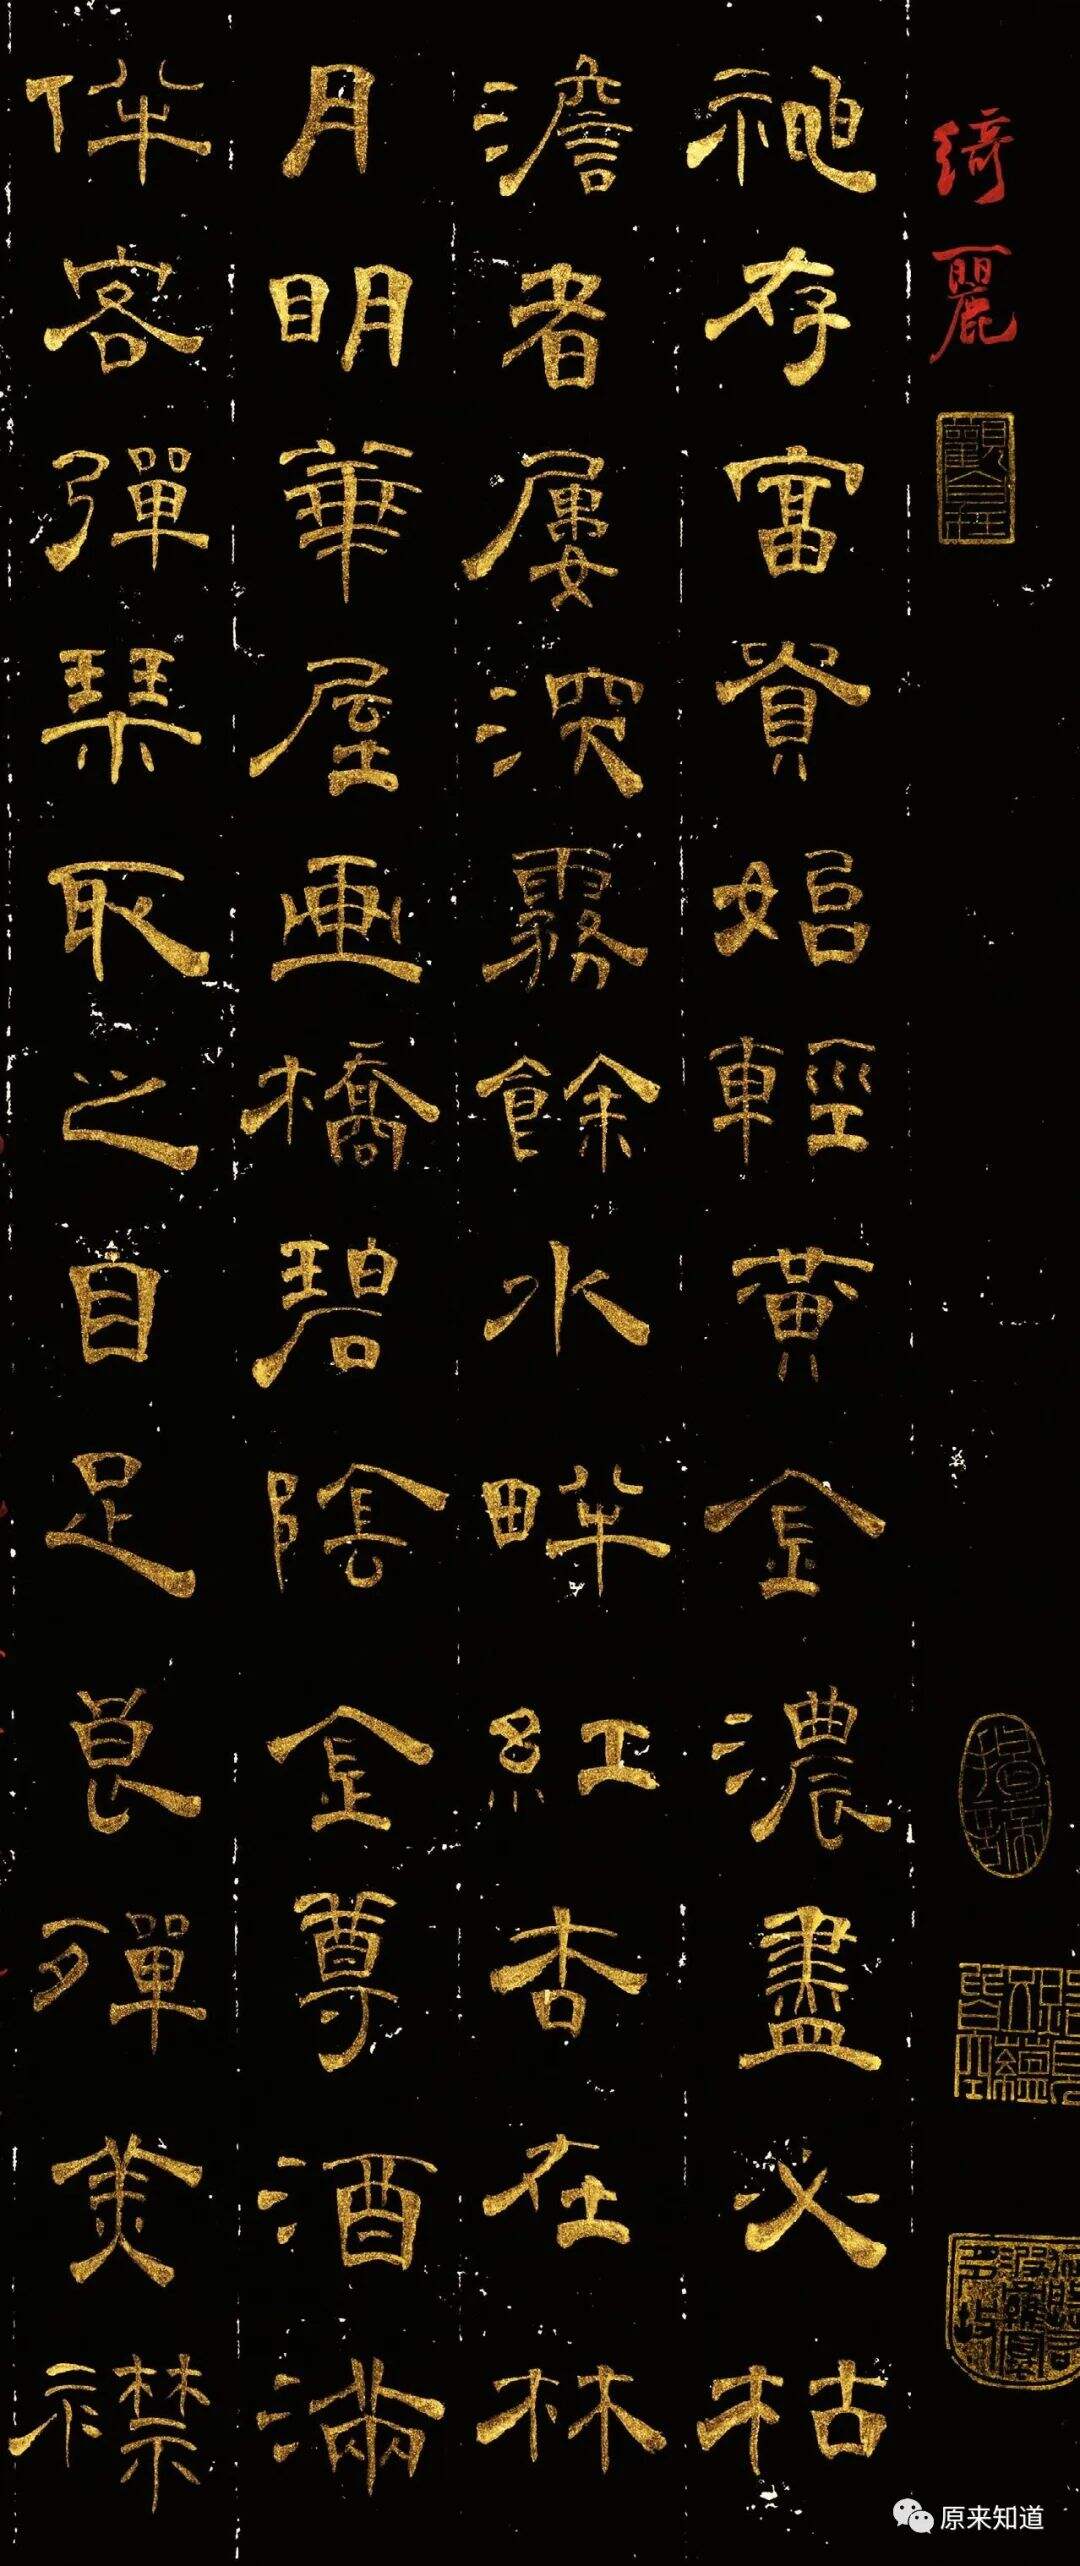 綺麗
神存富貴始輕黃金濃盡必枯
澹者屢深霧餘水畔紅杏在林
月明華屋画橋碧陰金尊酒滿
伴客彈琹取之自足良殫美襟
原来知道